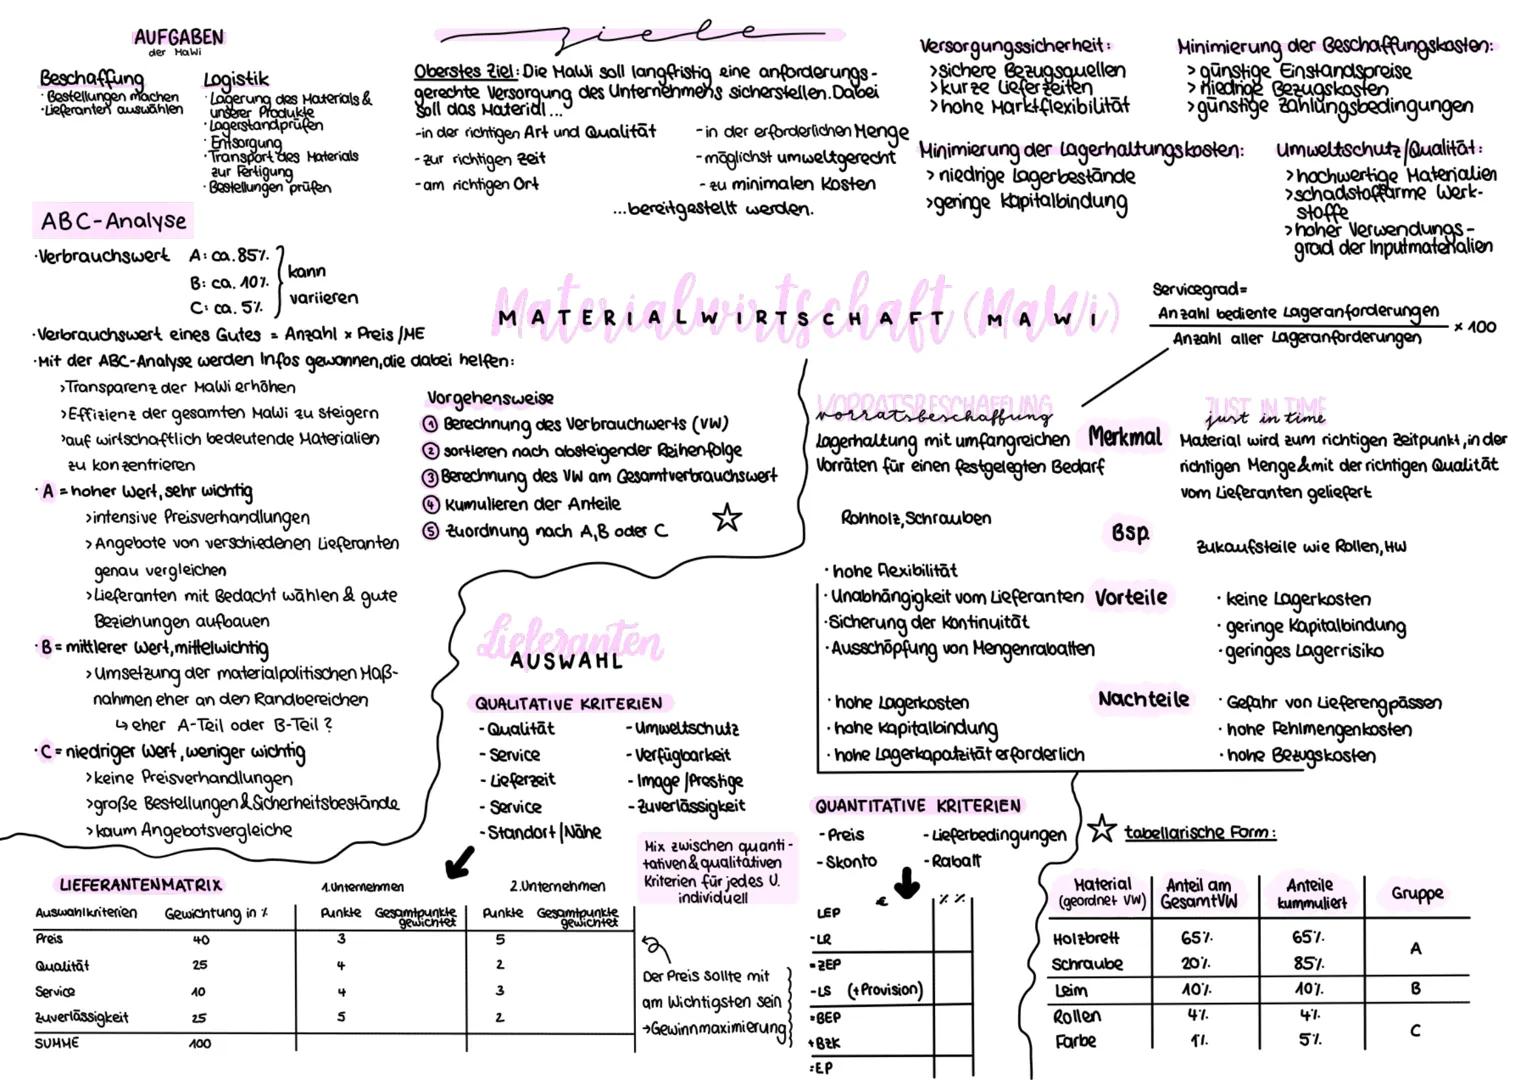 AUFGABEN
der MaWi
Beschaffung
· Bestellungen machen
· Lieferanten auswählen
Logistik
· Lagerung des Materials &
unserer Produkte
· Lagerstandprüfen
· Entsorgung
· Transport des Materials
zur Fertigung
· Bestellungen prüfen
ziele
Oberstes Ziel: Die MaWi soll langfristig eine anforderungs-
gerechte Versorgung des Unternehmens sicherstellen. Dabei
soll das Material...
- in der richtigen Art und Qualität
- zur richtigen Zeit
- am richtigen Ort
- in der erforderlichen Menge
- möglichst umweltgerecht
- zu minimalen Kosten
...bereitgestellt werden.
Versorgungssicherheit:
> sichere Bezugsquellen
> kurze Lieferzeiten
> hohe Marktflexibilität
Minimierung der Beschaffungskosten:
> günstige Einstandspreise
> niedrige Bezugskosten
> günstige Zahlungsbedingungen
Minimierung der Lagerhaltungskosten:
> niedrige Lagerbestände
> geringe Kapitalbindung
Umweltschutz/Qualität:
> hochwertige Materialien
> schadstoffarme Werk-
stoffe
> hoher Verwendungs-
grad der Inputmaterialien
ABC-Analyse
· Verbrauchswert A: ca. 85%
B: ca. 10%
C: ca. 5%
kann
variieren
· Verbrauchswert eines Gutes = Anzahl x Preis/ME
· Mit der ABC-Analyse werden Infos gewonnen, die dabei helfen:
> Transparenz der MaWi erhöhen
> Effizienz der gesamten MaWi zu steigern
> auf wirtschaftlich bedeutende Materialien
zu konzentrieren
· A = hoher Wert, sehr wichtig
> intensive Preisverhandlungen
> Angebote von verschiedenen Lieferanten
genau vergleichen
> Lieferanten mit Bedacht wählen & gute
Beziehungen aufbauen
· B = mittlerer Wert, mittelwichtig
> Umsetzung der materialpolitischen Maß-
nahmen eher an den Randbereichen
↳ eher A-Teil oder B-Teil?
· C = niedriger Wert, weniger wichtig
> keine Preisverhandlungen
> große Bestellungen & Sicherheitsbestände
> kaum Angebotsvergleiche
Vorgehensweise
① Berechnung des Verbrauchwerts (VW)
② sortieren nach absteigender Reihenfolge
③ Berechnung des VW am Gesamtverbrauchswert
④ Kumulieren der Anteile
⑤ Zuordnung nach A, B oder C
Materialwirtschaft (MaWi)
MATERIALWIRTSCHAFT MAWI
Servicegrad =
Anzahl bediente Lageranforderungen
Anzahl aller Lageranforderungen
x 100
VORRATSBESCHAFFUNG
vorratsbeschaffung
Lagerhaltung mit umfangreichen
Vorräten für einen festgelegten Bedarf
Merkmal
JUST IN TIME
just in time
Material wird zum richtigen Zeitpunkt, in der
richtigen Menge & mit der richtigen Qualität
vom Lieferanten geliefert
Rohholz, Schrauben
Bsp.
Zukaufsteile wie Rollen, HW
· hohe Flexibilität
· Unabhängigkeit vom Lieferanten
· Sicherung der Kontinuität
· Ausschöpfung von Mengenrabatten
Vorteile
· keine Lagerkosten
· geringe Kapitalbindung
· geringes Lagerrisiko
· hohe Lagerkosten
· hohe Kapitalbindung
· hohe Lagerkapatzität erforderlich
Nachteile
· Gefahr von Lieferengpässen
· hohe Fehlmengenkosten
· hohe Bezugskosten
Lieferanten
AUSWAHL
QUALITATIVE KRITERIEN
- Qualität
- Service
- Lieferzeit
- Service
- Standort/Nähe
- Umweltschutz
- Verfügbarkeit
- Image/Prestige
- Zuverlässigkeit
Mix zwischen quanti-
tativen & qualitativen
Kriterien für jedes U.
individuell
QUANTITATIVE KRITERIEN
- Preis
- Skonto
- Lieferbedingungen
- Rabatt
LIEFERANTENMATRIX
1. Unternehmen
2. Unternehmen
Auswahlkriterien Gewichtung in % Punkte Gesamtpunkte gewichtet Punkte Gesamtpunkte gewichtet
Preis 40 3 5
Qualität 25 4 2
Service 10 4 3
Zuverlässigkeit 25 5 2
SUMME 100
Der Preis sollte mit
am Wichtigsten sein
→ Gewinnmaximierung
€ % %
LEP
- LR
= ZEP
- LS (+Provision)
= BEP
+ BZK
= EP
tabellarische Form:
Material (geordnet VW) Anteil am GesamtVW Anteile kummuliert Gruppe
Holzbrett 65% 65%
A
Schraube 20% 85%
Leim 10% 10% B
Rollen 4% 4%
C
Farbe 1% 5%